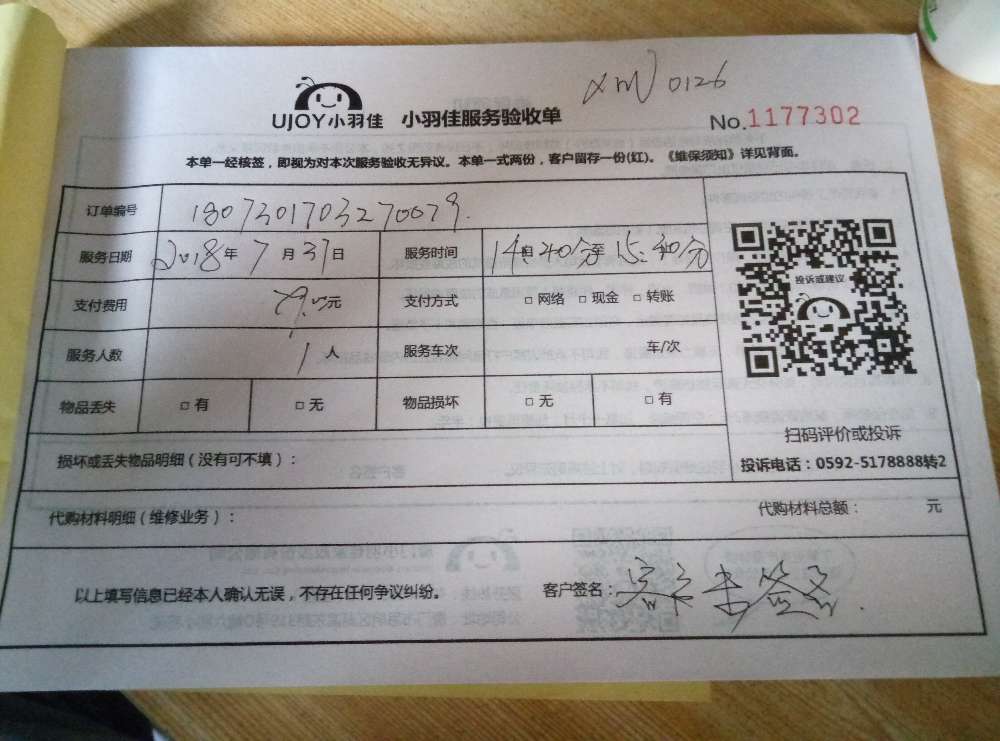 XMU 0126
UJOY小羽佳 小羽佳服务验收单 No.1177302
本单一经核签，即视为对本次服务验收无异议。本单一式两份，客户留存一份(红)。《维保须知》详见背面。
订单编号 1807301703270079.
服务日期 2018年7月31日 服务时间 14:40分至15:40分
投诉或建议
支付费用 元 支付方式 □网络 □现金 □转账
服务人数 1人 服务车次 车/次
物品丢失 □有 □无 物品损坏 □无 □有
扫码评价或投诉
损坏或丢失物品明细（没有可不填）：
投诉电话：0592-5178888转2
代购材料明细（维修业务）： 代购材料总额： 元
以上填写信息已经本人确认无误，不存在任何争议纠纷。 客户签名：客户未签名.